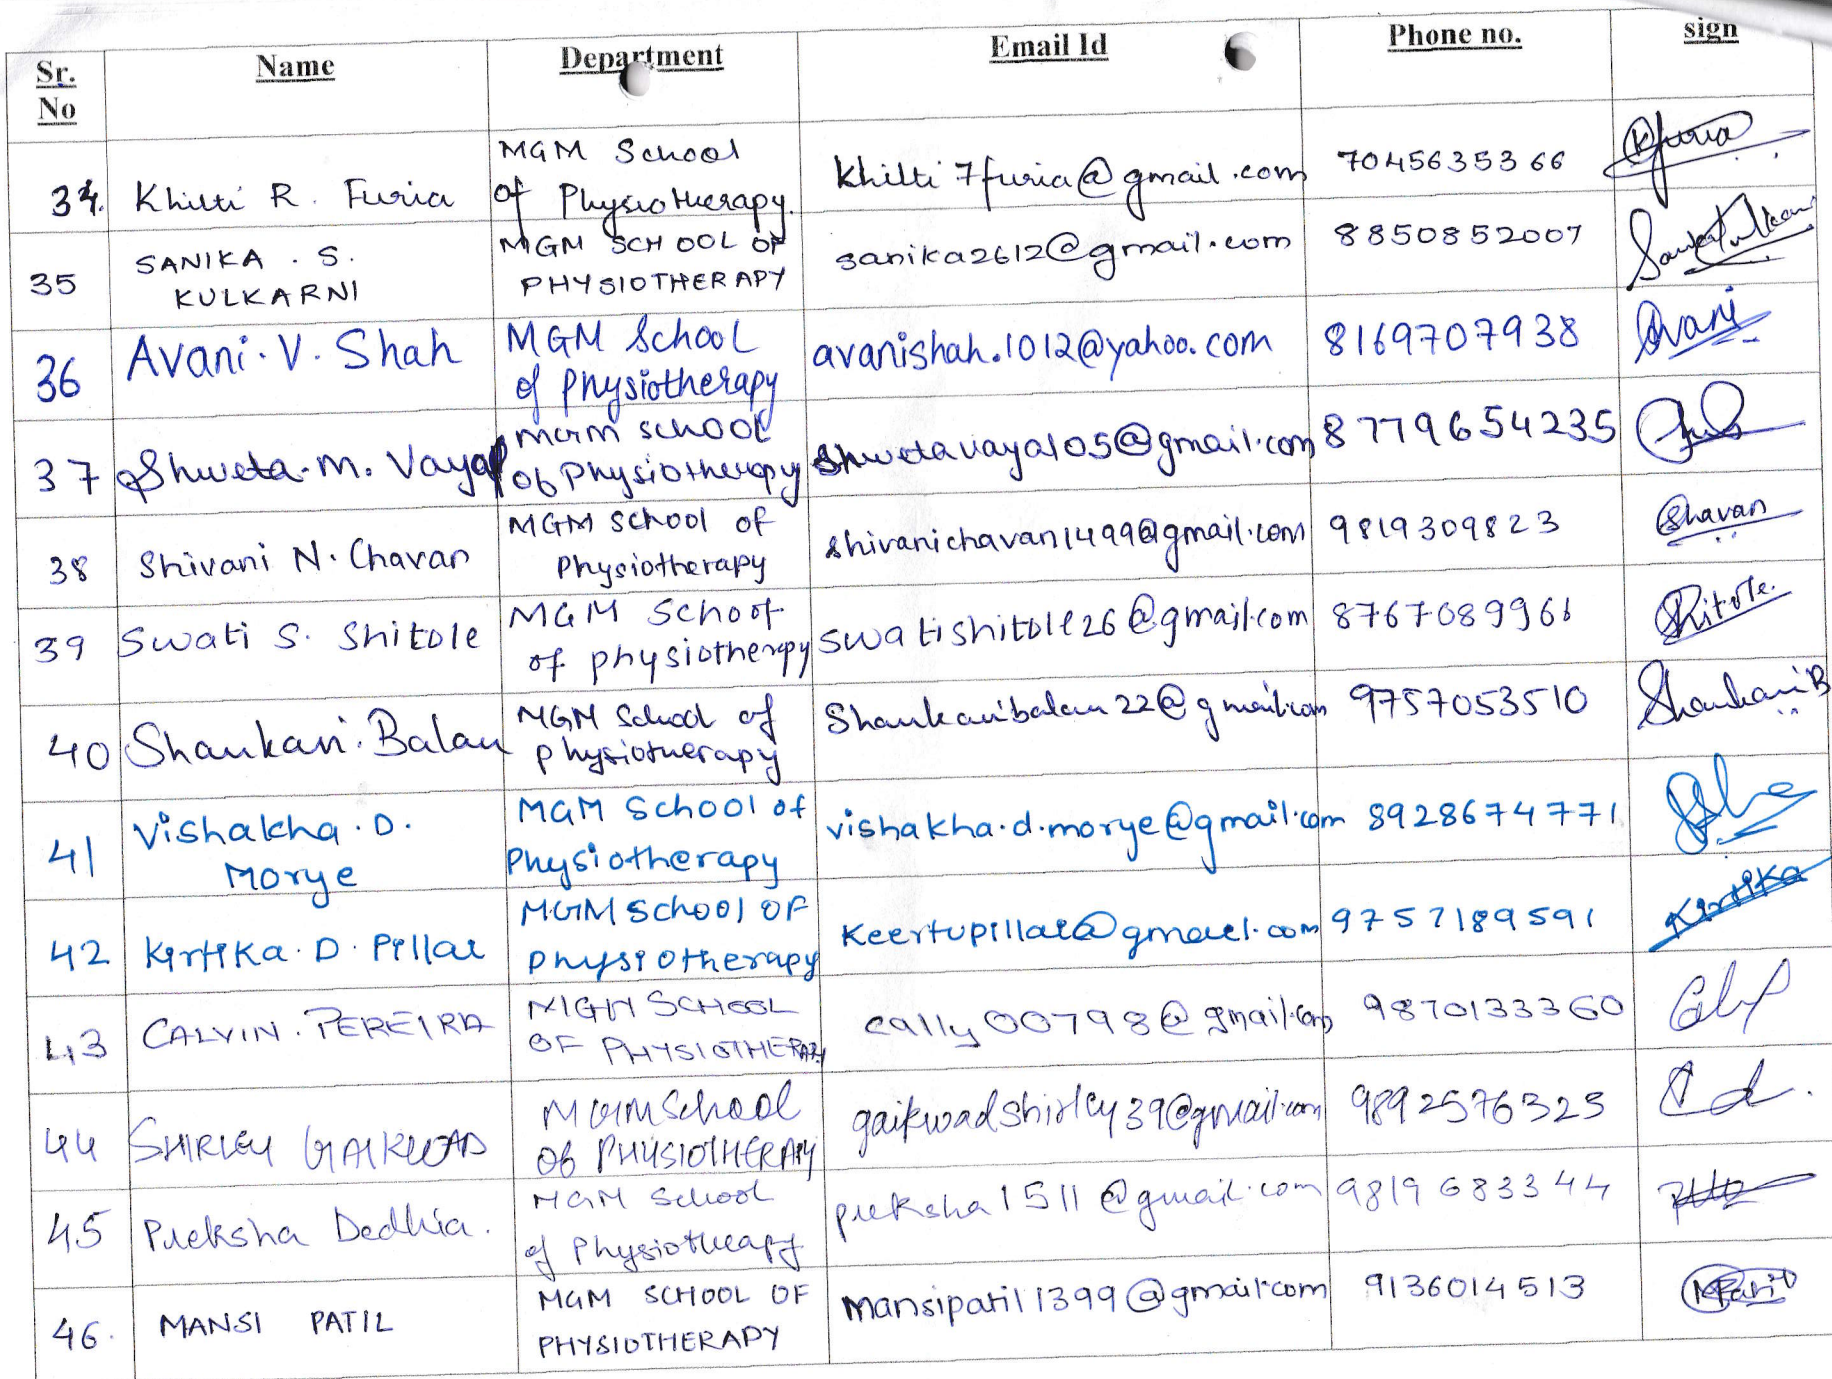 Sr. No Name Department Email Id Phone no. sign
34. Khilti R. Furia MGM School of Physiotherapy. khilti7furia@gmail.com 7045635366 Kfuria
35 SANIKA . S. KULKARNI MGM SCHOOL OF PHYSIOTHERAPY sanika2612@gmail.com 8850852007
36 Avani. V. Shah MGM School of Physiotherapy avanishah.1012@yahoo.com 8169707938 Avani
37 Shweta. M. Vaya MGM school of Physiotherapy shwetavaya105@gmail.com 8779654235
38 Shivani N. Chavan MGM School of Physiotherapy shivanichavan1499@gmail.com 9819309823 Chavan
39 Swati S. Shitole MGM School of physiotherapy swatishitole26@gmail.com 8767089961 Shitole.
40 Shankari. Balan MGM School of physiotherapy Shankaribalan22@gmail.com 9757053510 Shankari B
41 Vishakha. D. Morye MGM School of Physiotherapy vishakha.d.morye@gmail.com 8928674771
42 Kirtika. D. Pillai MGM School OF Physiotherapy Keertupillai@gmail.com 9757189591 Kirtika
43 CALVIN. PEREIRA MGM SCHOOL OF PHYSIOTHERAPY cally00798@gmail.com 9870133360
44 SHIRLEY GAIKWAD MGM School of PHYSIOTHERAPY gaikwadshirley39@gmail.com 9892576323
45 Preksha Dedhia. MGM School of Physiotherapy preksha1511@gmail.com 9819683344
46. MANSI PATIL MGM SCHOOL OF PHYSIOTHERAPY mansipatil1399@gmail.com 9136014513 MPatil